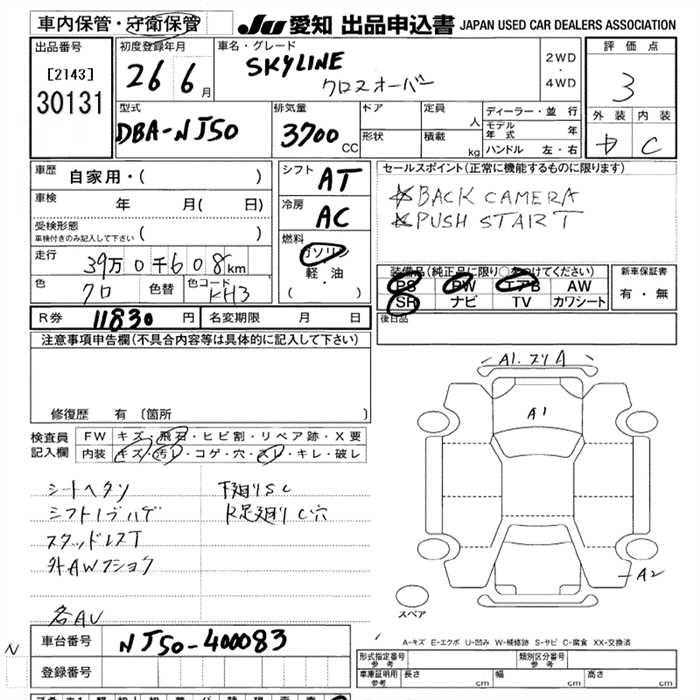 車内保管・守衛保管
JU 愛知 出品申込書 JAPAN USED CAR DEALERS ASSOCIATION
出品番号
[2143]
30131
初度登録年月
26 6月
車名・グレード
SKYLINE
クロスオーバー
2WD
・
4WD
評価点
3
外装 内装
C
型式
DBA-NJ50
排気量
3700 CC
ドア
形状
定員 人
積載 kg
ディーラー・並行
モデル年式 年
ハンドル 左・右
車歴 自家用・( )
車検 年 月( 日)
受検形態
車検付きのみ記入して下さい ( )
走行 39万0千608km
色 クロ 色替 色コード KH3
シフト AT
冷房 AC
燃料 ガソリン
軽・油
(・)
セールスポイント(正常に機能するものに限ります)
☆BACK CAMERA
☆PUSH START
装備品(純正品に限り○をつけてください)
PS PW エアB AW
SR ナビ TV カワシート
新車保証書
有・無
後日品
R券 11830円 名変期限 月 日
注意事項申告欄(不具合内容等は具体的に記入して下さい)
修復歴 有 〔箇所 〕
検査員記入欄
FW キズ・飛石・ヒビ割・リペア跡・X要
内装 キズ・汚レ・コゲ・穴・スレ・キレ・破レ
シートヘタリ
シフトノブハゲ
スタッドレスT
外AWフショク
各AU
下廻りSC
R足廻りC穴
A1
A2
スペア
A-キズ E-エクボ U-凹み W-補修跡 S-サビ C-腐食 XX-交換済
N
車台番号 NJ50-400083
登録番号
形式指定番号 参考
類別区分番号 参考
車庫証明用 参考 長さ cm 幅 cm 高さ cm